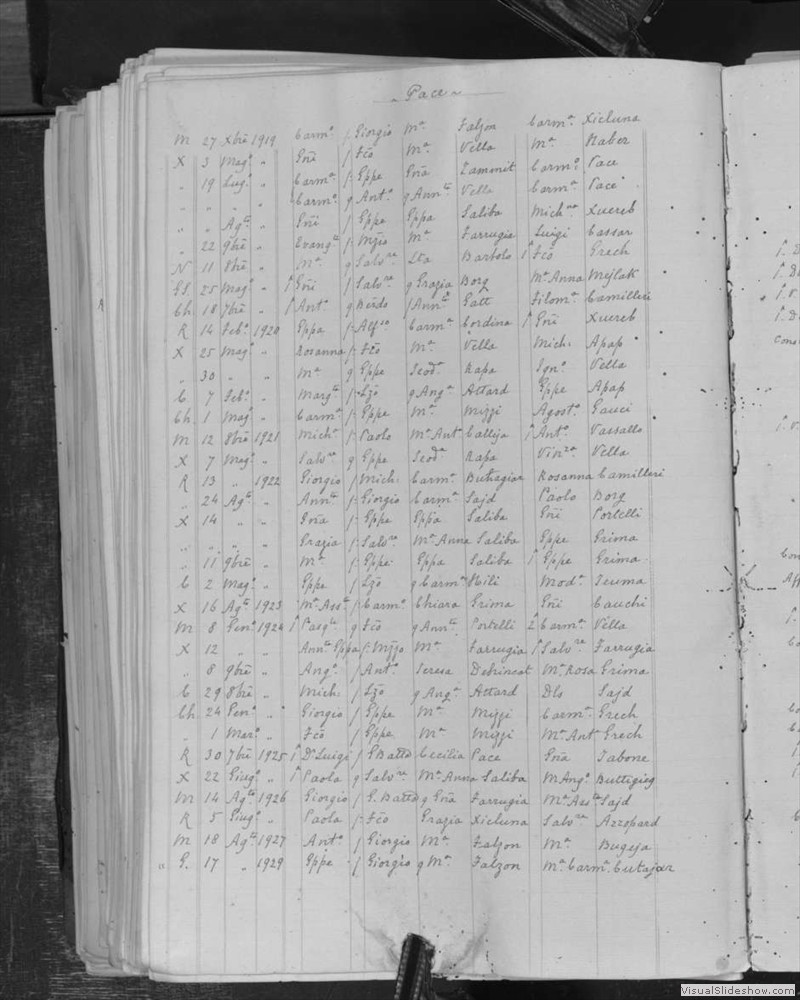 Pace
M 27 Xbre 1919 Carmo f. Giorgio Ma Falzon Carma Xicluna
X 3 Mago " Gni f. Fco Ma Vella Ma Naber
" 19 Lugo " Carma f. Gppe Gna Zammit Carmo Pace
" " " " Carmo q Anto q Annta Vella Carma Pace
" " Agto " Gni f. Gppe Gppa Saliba Micha Xuereb
" 22 9bre " Evangta f. Ma Farrugia Luigi Cassar
N 11 8bre " Ma q Salvre Lta Bartolo 1 Fco Grech
25 Mago " 1 Gni f Salvre q Grazia Borg Ma Anna Mejlak
Ch 18 7bre " 1 Anto q f Annta Galt Filoma Camilleri
R 14 Febo 1920 Gppa f. Alfso Carma Cordina 1 Gni Xuereb
X 25 Mago " Rosanna f. Fco Ma Vella Mich. Apap
" 30 " " Ma q Gppe Teoda Rapa Igno Vella
C 7 Febo " Margta f. Lzo q Anga Attard Gppe Apap
Ch 1 Mago " Carma f. Gppe Ma Mizzi Agosto Gauci
M 12 8bre 1921 Micha f. Paolo Ma Anta Calleja 1 Anto Vassallo
X 7 Mago " Salvre q Gppe Teoda Rapa Vinza Vella
R 13 " 1922 Giorgio f Mich. Carma Buhagiar Rosanna Camilleri
" 24 Agto " Annta f. Giorgio Carma Sajd Paolo Borg
X 14 " " Gna f. Gppe Gppa Saliba Gni Portelli
" " " " Grazia f. Salvre Ma Anna Saliba Gppe Grima
" 11 9bre " Ma f. Gppe Gppa Saliba 1 Gppe Grima
C 2 Mago " Gppe f Lzo q Carma Hili Moda Scuma
X 16 Agto 1923 Ma Assta f Carmo Chiara Grima Gni Cauchi
M 8 Geno 1924 1 Pasqle q Fco q Annta Portelli 2 Carma Vella
X 12 " " Annta Gppa f. Ma Farrugia 1 Salvre Farrugia
" 8 9bre " Ango f Anto Teresa Debrincat Ma Rosa Grima
C 29 8bre " Mich. f Lzo q Anga Attard Dls Sajd
Ch 24 Geno " Giorgio f Gppe Ma Mizzi Carma Grech
" 1 Maro " Fco f Gppe Ma Mizzi Ma Anta Grech
R 30 7bre 1925 1 Dr Luigi f G Batta Cecilia Pace Gna Tabone
X 22 Giugo " 1 Paola q Salvre Ma Anna Saliba M Ango Buttigieg
M 14 Agto 1926 Giorgio f G. Batta q Gna Farrugia Ma Assta Sajd
R 5 Giugo " Paola f. Fco Grazia Xicluna Salvre Azzopard
M 18 Agto 1927 Anto f Giorgio Ma Falzon Ma Bugeja
" G. 17 " 1929 Gppe f Giorgio q Ma Falzon Ma Carma Cutajar
VisualSlideshow.com